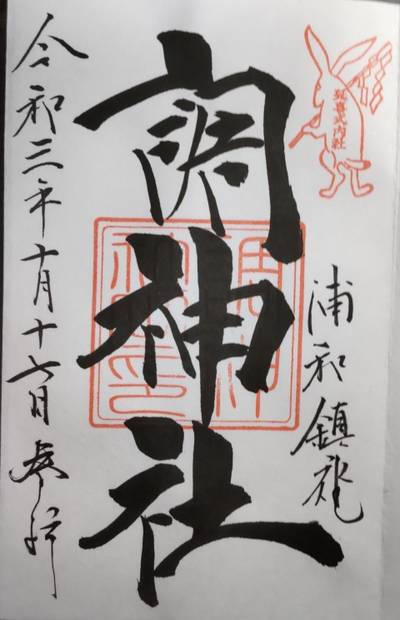 延喜式内社
浦和鎮守
調神社
令和三年十月十六日 参拝